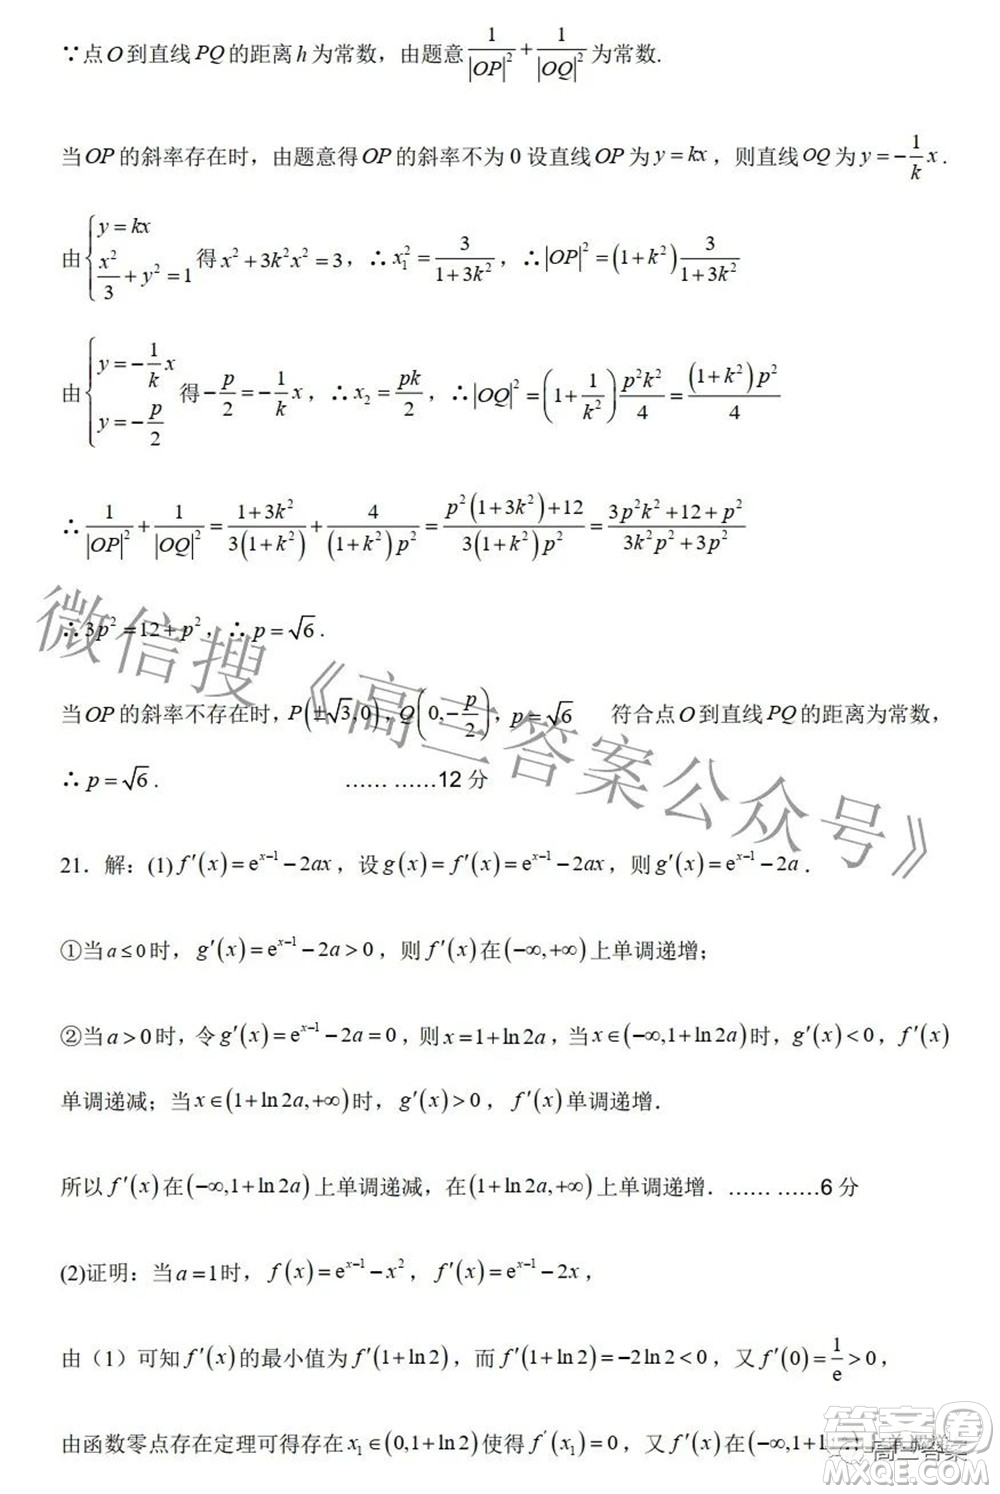 ∵点O到直线PQ的距离h为常数，由题意1/|OP|²+1/|OQ|²为常数.
当OP的斜率存在时，由题意得OP的斜率不为0设直线OP为y=kx，则直线OQ为y=-1/k x.
由{y=kx, x²/3+y²=1得x²+3k²x²=3，∴x₁²=3/(1+3k²)，∴|OP|²=(1+k²)3/(1+3k²)
由{y=-1/k x, y=-p/2得-p/2=-1/k x，∴x₂=pk/2，∴|OQ|²=(1+1/k²)p²k²/4=(1+k²)p²/4
∴1/|OP|²+1/|OQ|²=(1+3k²)/(3(1+k²))+4/((1+k²)p²)=(p²(1+3k²)+12)/(3(1+k²)p²)=(3p²k²+12+p²)/(3k²p²+3p²)
∴3p²=12+p²，∴p=√6.
当OP的斜率不存在时，P(±√3,0)，Q(0,-p/2)，p=√6 符合点O到直线PQ的距离为常数，
∴p=√6. …… ……12分
21．解：(1)f′(x)=e^(x-1)-2ax，设g(x)=f′(x)=e^(x-1)-2ax，则g′(x)=e^(x-1)-2a．
①当a≤0时，g′(x)=e^(x-1)-2a>0，则f′(x)在(-∞,+∞)上单调递增；
②当a>0时，令g′(x)=e^(x-1)-2a=0，则x=1+ln2a，当x∈(-∞,1+ln2a)时，g′(x)<0，f′(x)
单调递减；当x∈(1+ln2a,+∞)时，g′(x)>0，f′(x)单调递增.
所以f′(x)在(-∞,1+ln2a)上单调递减，在(1+ln2a,+∞)上单调递增．…… ……6分
(2)证明：当a=1时，f(x)=e^(x-1)-x²，f′(x)=e^(x-1)-2x，
由（1）可知f′(x)的最小值为f′(1+ln2)，而f′(1+ln2)=-2ln2<0，又f′(0)=1/e>0，
由函数零点存在定理可得存在x₁∈(0,1+ln2)使得f′(x₁)=0，又f′(x)在(-∞,1+l
微信搜《高三答案公众号》
答案圈
MXQE.COM
高三答案